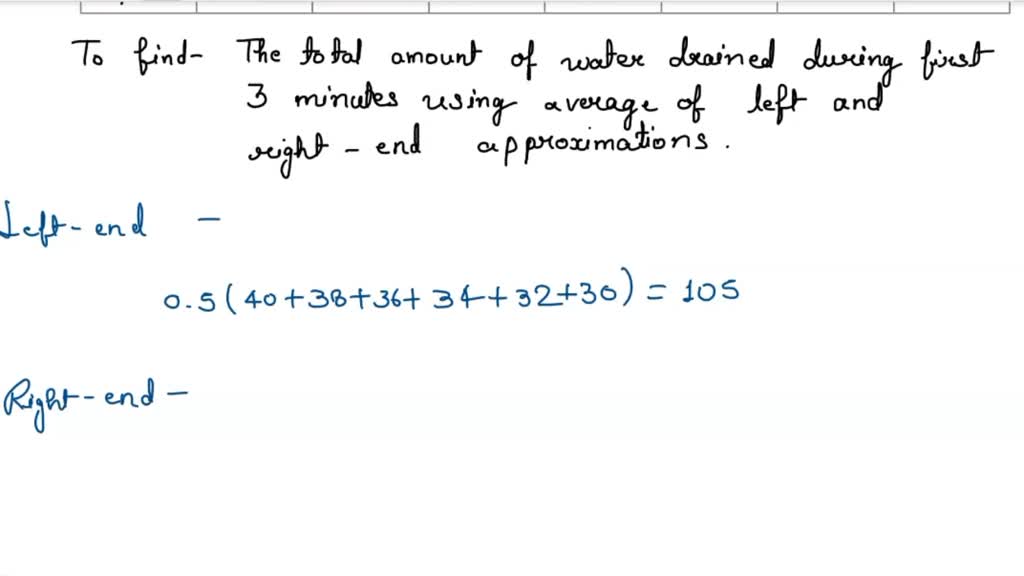 To find- The total amount of water drained during first
3 minutes using average of left and
right-end approximations.
Left-end -
0.5(40+38+36+34+32+30) = 105
Right-end -